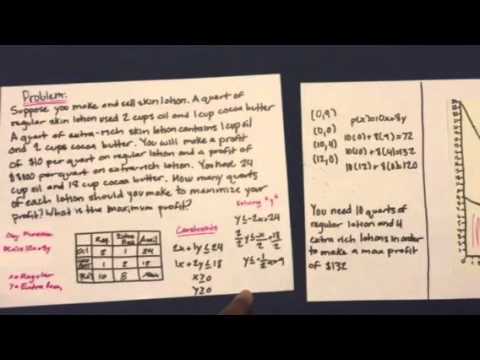 Problem:
Suppose you make and sell skin lotion. A quart of
regular skin lotion used 2 cups oil and 1 cup cocoa butter
A quart of extra-rich skin lotion contains 1 cup oil
and 2 cups cocoa butter. You will make a profit
of $10 per quart on regular lotion and a profit of
per quart on extra-rich lotion. You have 24
cup oil and 18 cup cocoa butter. How many quarts
of each lotion should you make to maximize your
profit? What is the maximum profit?
Obj. Function
x=Regular
y=Extra Rich
Reg Extra Rich Avail
Oil 2 1 24
1 2 18
10 8
Constraints
2x+1y≤24
1x+2y≤18
x≥0
y≥0
Solving "y"
y≤-2x+24
2y≤-x+18
2 2 2
y≤-1/2x+9
(0,9)
(0,0)
(10,4)
(12,0)
10(0)+8(9)=72
10(10)+8(4)=132
10(12)+8(0)=120
You need 10 quarts of
regular lotion and 4
extra rich lotions in order
to make a max profit
of $132